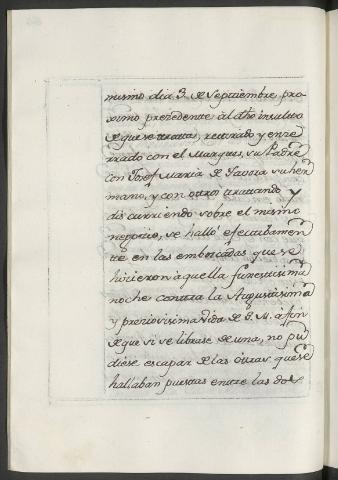 mismo dia 3. de Septiembre pro-
ximo precedente àl dho insulto
de que se tratta, rettirado y enze-
rrado con el Marques, su Padre
con Josef Maria de Tavora su her
mano, y con ottros trattando y
discurriendo sobre el mismo
negocio, se halló efectivamen
te en las emboscadas que se
hicieron àquella funestissima
noche contra la Augustissima
y preziosissima vida de S. M. à fin
de que si se librase de una, no pu
diese escapar de las otras, que se
hallaban puestas entre las dos